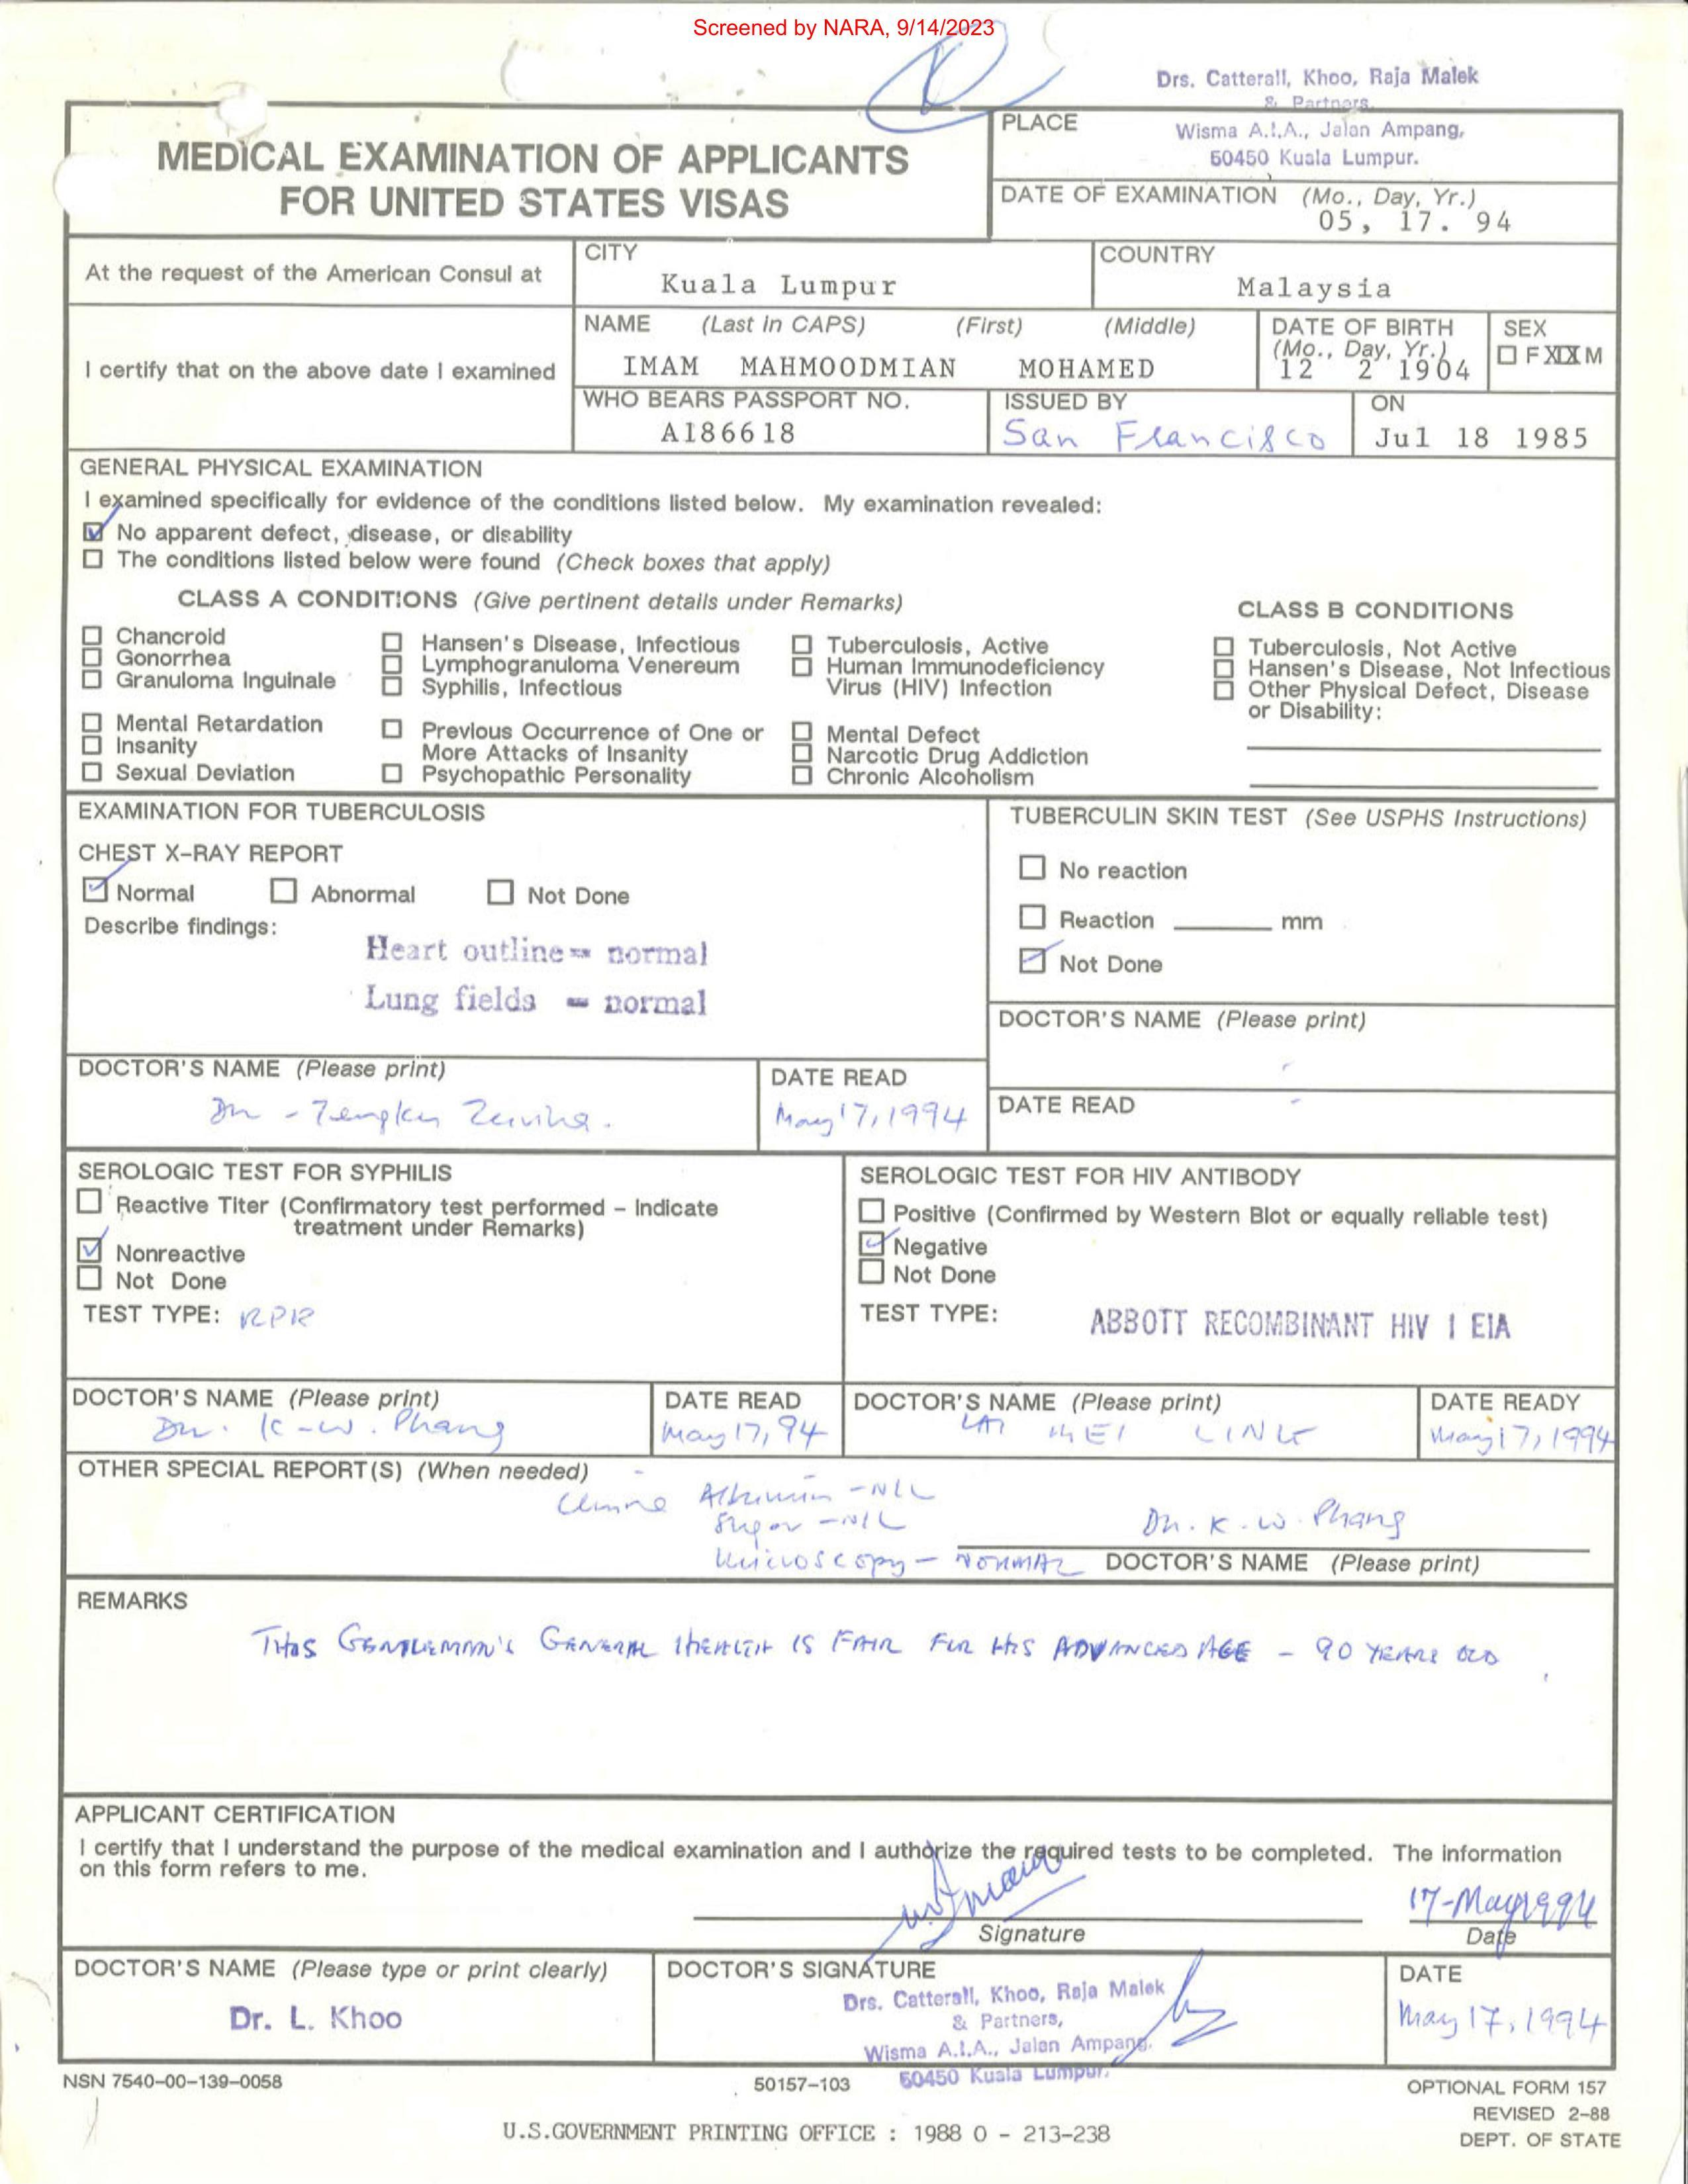 Screened by NARA, 9/14/2023
Drs. Catterall, Khoo, Raja Malek
& Partners,
Wisma A.I.A., Jalan Ampang,
50450 Kuala Lumpur.
MEDICAL EXAMINATION OF APPLICANTS
FOR UNITED STATES VISAS
PLACE
DATE OF EXAMINATION (Mo., Day, Yr.)
05, 17. 94
At the request of the American Consul at
CITY
Kuala Lumpur
COUNTRY
Malaysia
I certify that on the above date I examined
NAME (Last in CAPS) (First) (Middle)
IMAM MAHMOODMIAN MOHAMED
DATE OF BIRTH
(Mo., Day, Yr.)
12 2 1904
SEX
F XXX M
WHO BEARS PASSPORT NO.
A186618
ISSUED BY
San Francisco
ON
Jul 18 1985
GENERAL PHYSICAL EXAMINATION
I examined specifically for evidence of the conditions listed below. My examination revealed:
No apparent defect, disease, or disability
The conditions listed below were found (Check boxes that apply)
CLASS A CONDITIONS (Give pertinent details under Remarks)
Chancroid
Gonorrhea
Granuloma Inguinale
Hansen's Disease, Infectious
Lymphogranuloma Venereum
Syphilis, Infectious
Tuberculosis, Active
Human Immunodeficiency
Virus (HIV) Infection
Mental Retardation
Insanity
Sexual Deviation
Previous Occurrence of One or
More Attacks of Insanity
Psychopathic Personality
Mental Defect
Narcotic Drug Addiction
Chronic Alcoholism
CLASS B CONDITIONS
Tuberculosis, Not Active
Hansen's Disease, Not Infectious
Other Physical Defect, Disease
or Disability:
EXAMINATION FOR TUBERCULOSIS
CHEST X-RAY REPORT
Normal Abnormal Not Done
Describe findings:
Heart outline - normal
Lung fields - normal
DOCTOR'S NAME (Please print)
Dr - Tengku
DATE READ
May 17, 1994
TUBERCULIN SKIN TEST (See USPHS Instructions)
No reaction
Reaction mm
Not Done
DOCTOR'S NAME (Please print)
-
DATE READ
-
SEROLOGIC TEST FOR SYPHILIS
Reactive Titer (Confirmatory test performed - Indicate
treatment under Remarks)
Nonreactive
Not Done
TEST TYPE: RPR
DOCTOR'S NAME (Please print)
Dr. K-W. Phang
DATE READ
May 17, 94
SEROLOGIC TEST FOR HIV ANTIBODY
Positive (Confirmed by Western Blot or equally reliable test)
Negative
Not Done
TEST TYPE: ABBOTT RECOMBINANT HIV I EIA
DOCTOR'S NAME (Please print)
MEI LING
DATE READY
May 17, 1994
OTHER SPECIAL REPORT(S) (When needed)
Urine Albumin - NIL
Sugar - NIL
Microscopy - NORMAL
Dr. K. W. Phang
DOCTOR'S NAME (Please print)
REMARKS
THIS GENTLEMAN'S GENERAL HEALTH IS FAIR FOR HIS ADVANCED AGE - 90 YEARS OLD
APPLICANT CERTIFICATION
I certify that I understand the purpose of the medical examination and I authorize the required tests to be completed. The information
on this form refers to me.
Signature
17-May 1994
Date
DOCTOR'S NAME (Please type or print clearly)
Dr. L. Khoo
DOCTOR'S SIGNATURE
Drs. Catterall, Khoo, Raja Malek
& Partners,
Wisma A.I.A., Jalan Ampang,
50450 Kuala Lumpur.
DATE
May 17, 1994
NSN 7540-00-139-0058
50157-103
OPTIONAL FORM 157
REVISED 2-88
DEPT. OF STATE
U.S.GOVERNMENT PRINTING OFFICE : 1988 O - 213-238